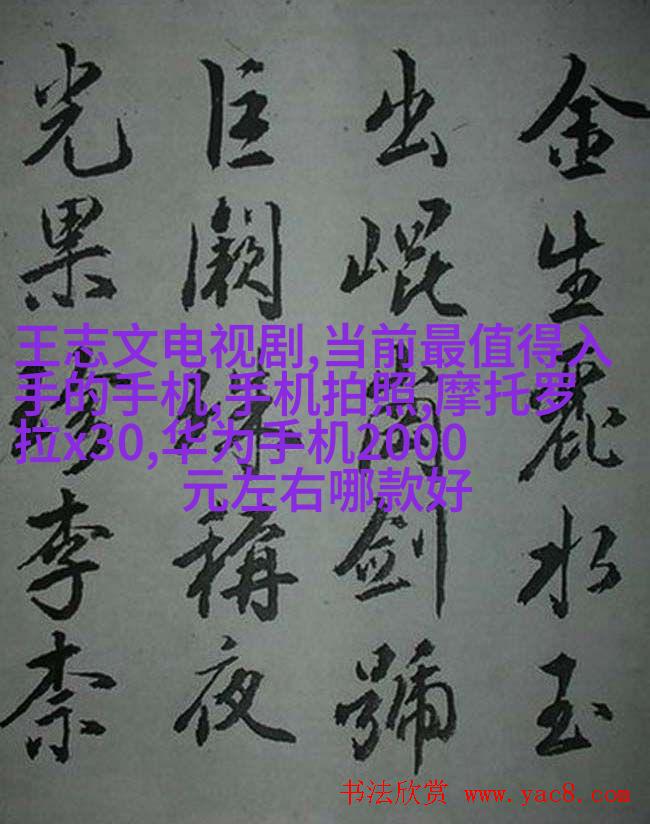 金生麗水玉
出崐岡劍號
巨闕珠稱夜
光果珍李柰
王志文电视剧,当前最值得入
手的手机,手机拍照,摩托罗
拉x30,华为手机2000
元左右哪款好
书法欣赏 www.yac8.com